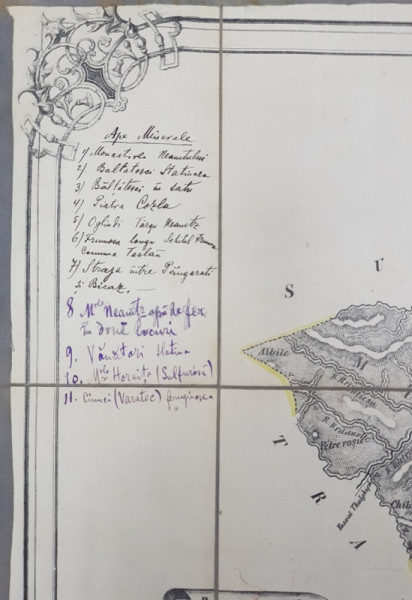 Ape Minerale
1) Monastirea Neamtului
2) Baltatesci Slatina
3) Bălțătesci în satu
4) Piatra Cozla
5) Oglindi Târgu Neamtz
6) Frumosa lunga Schitul
Comuna Tazlău
7) Straja între Pângarati
și Bicaz.
8 Neamtz apă de fer
În doue locuri
9. Vânători Slatina
10. Horaița (Sulfurósă)
11. (Varatec) feruginosa
S U
Albile
M
Petre roșie
T
R
A